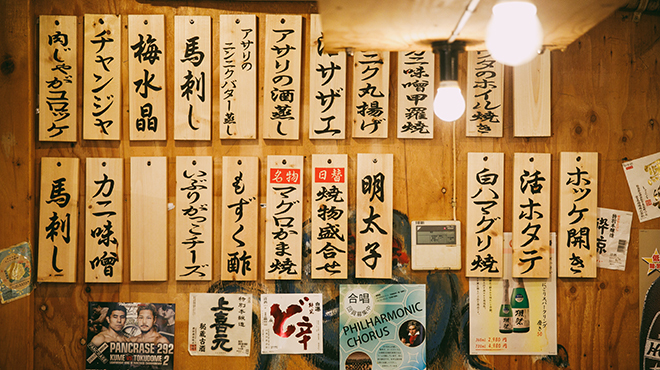 肉じゃがコロッケ
チャンジャ
梅水晶
馬刺し
アサリのニンニクバター蒸し
アサリの酒蒸し
サザエ
ニク丸揚げ
カニ味噌甲羅焼
のホイル焼き
馬刺し
カニ味噌
いぶりがっこチーズ
もずく酢
名物
マグロかま焼
日替
焼物盛合せ
明太子
白ハマグリ焼
活ホタテ
ホッケ開き
PANCRASE 292
KUME VS TOKUDOME 2
特別本醸造
上喜元
秘蔵古酒
ど辛
合唱
PHILHARMONIC
CHORUS
酔涼